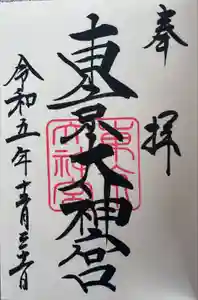 奉拝
東京大神宮
令和五年十二月日